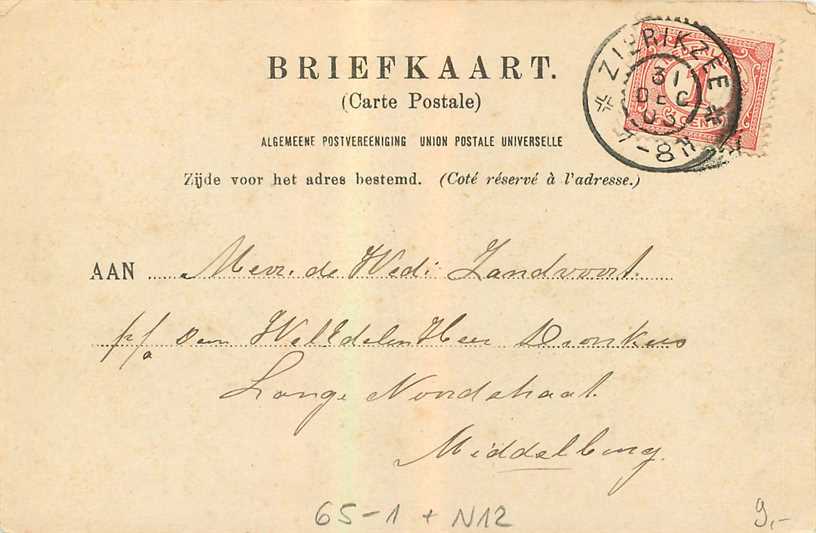 BRIEFKAART.
(Carte Postale)
ALGEMEENE POSTVEREENIGING UNION POSTALE UNIVERSELLE
Zijde voor het adres bestemd. (Coté réservé à l'adresse.)
ZIERIKZEE
31
DEC
03
7-8N
1
CENT
AAN Mevr. de Wed: Zandvoort.
p/a den WelEdelen Heer Dronkers
Lange Noordstraat
Middelburg.
65-1 + N12
9,-